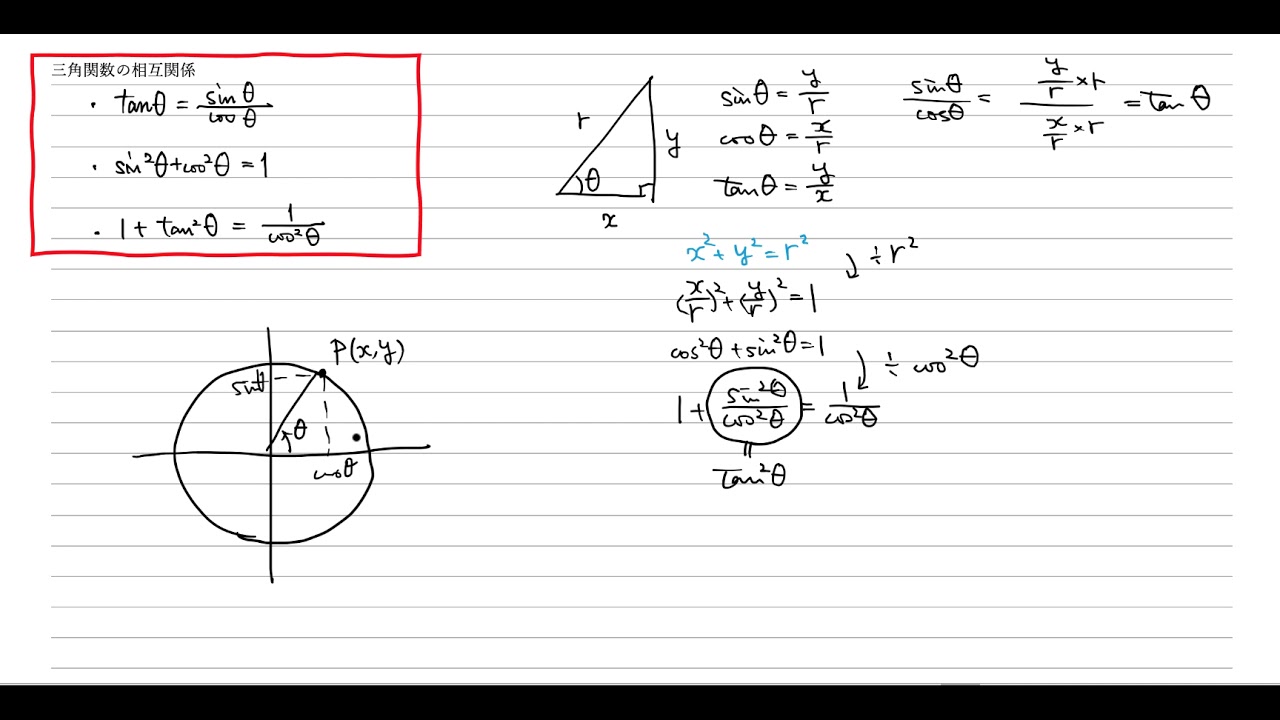 三角関数の相互関係
・ tanθ = sinθ/cosθ
・ sin²θ+cos²θ = 1
・ 1 + tan²θ = 1/cos²θ
r
θ
y
x
sinθ = y/r
cosθ = x/r
tanθ = y/x
sinθ/cosθ = (y/r × r)/(x/r × r) = tan θ
x² + y² = r²
÷ r²
(x/r)² + (y/r)² = 1
cos²θ + sin²θ = 1
÷ cos²θ
1 + sin²θ/cos²θ = 1/cos²θ
=
tan²θ
P(x,y)
sinθ
θ
cosθ